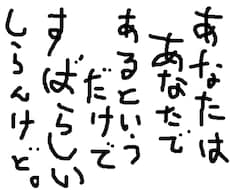 あなたは
あなたで
あるという
だけで
すばらしい
しらんけど。